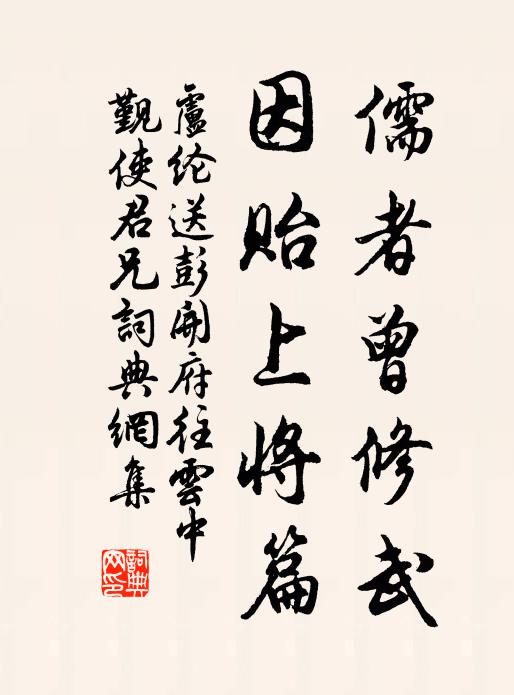 儒者曾修武
因貽上將篇
盧纶送彭開府往雲中
覲使君兄詞典網集
詞典網印